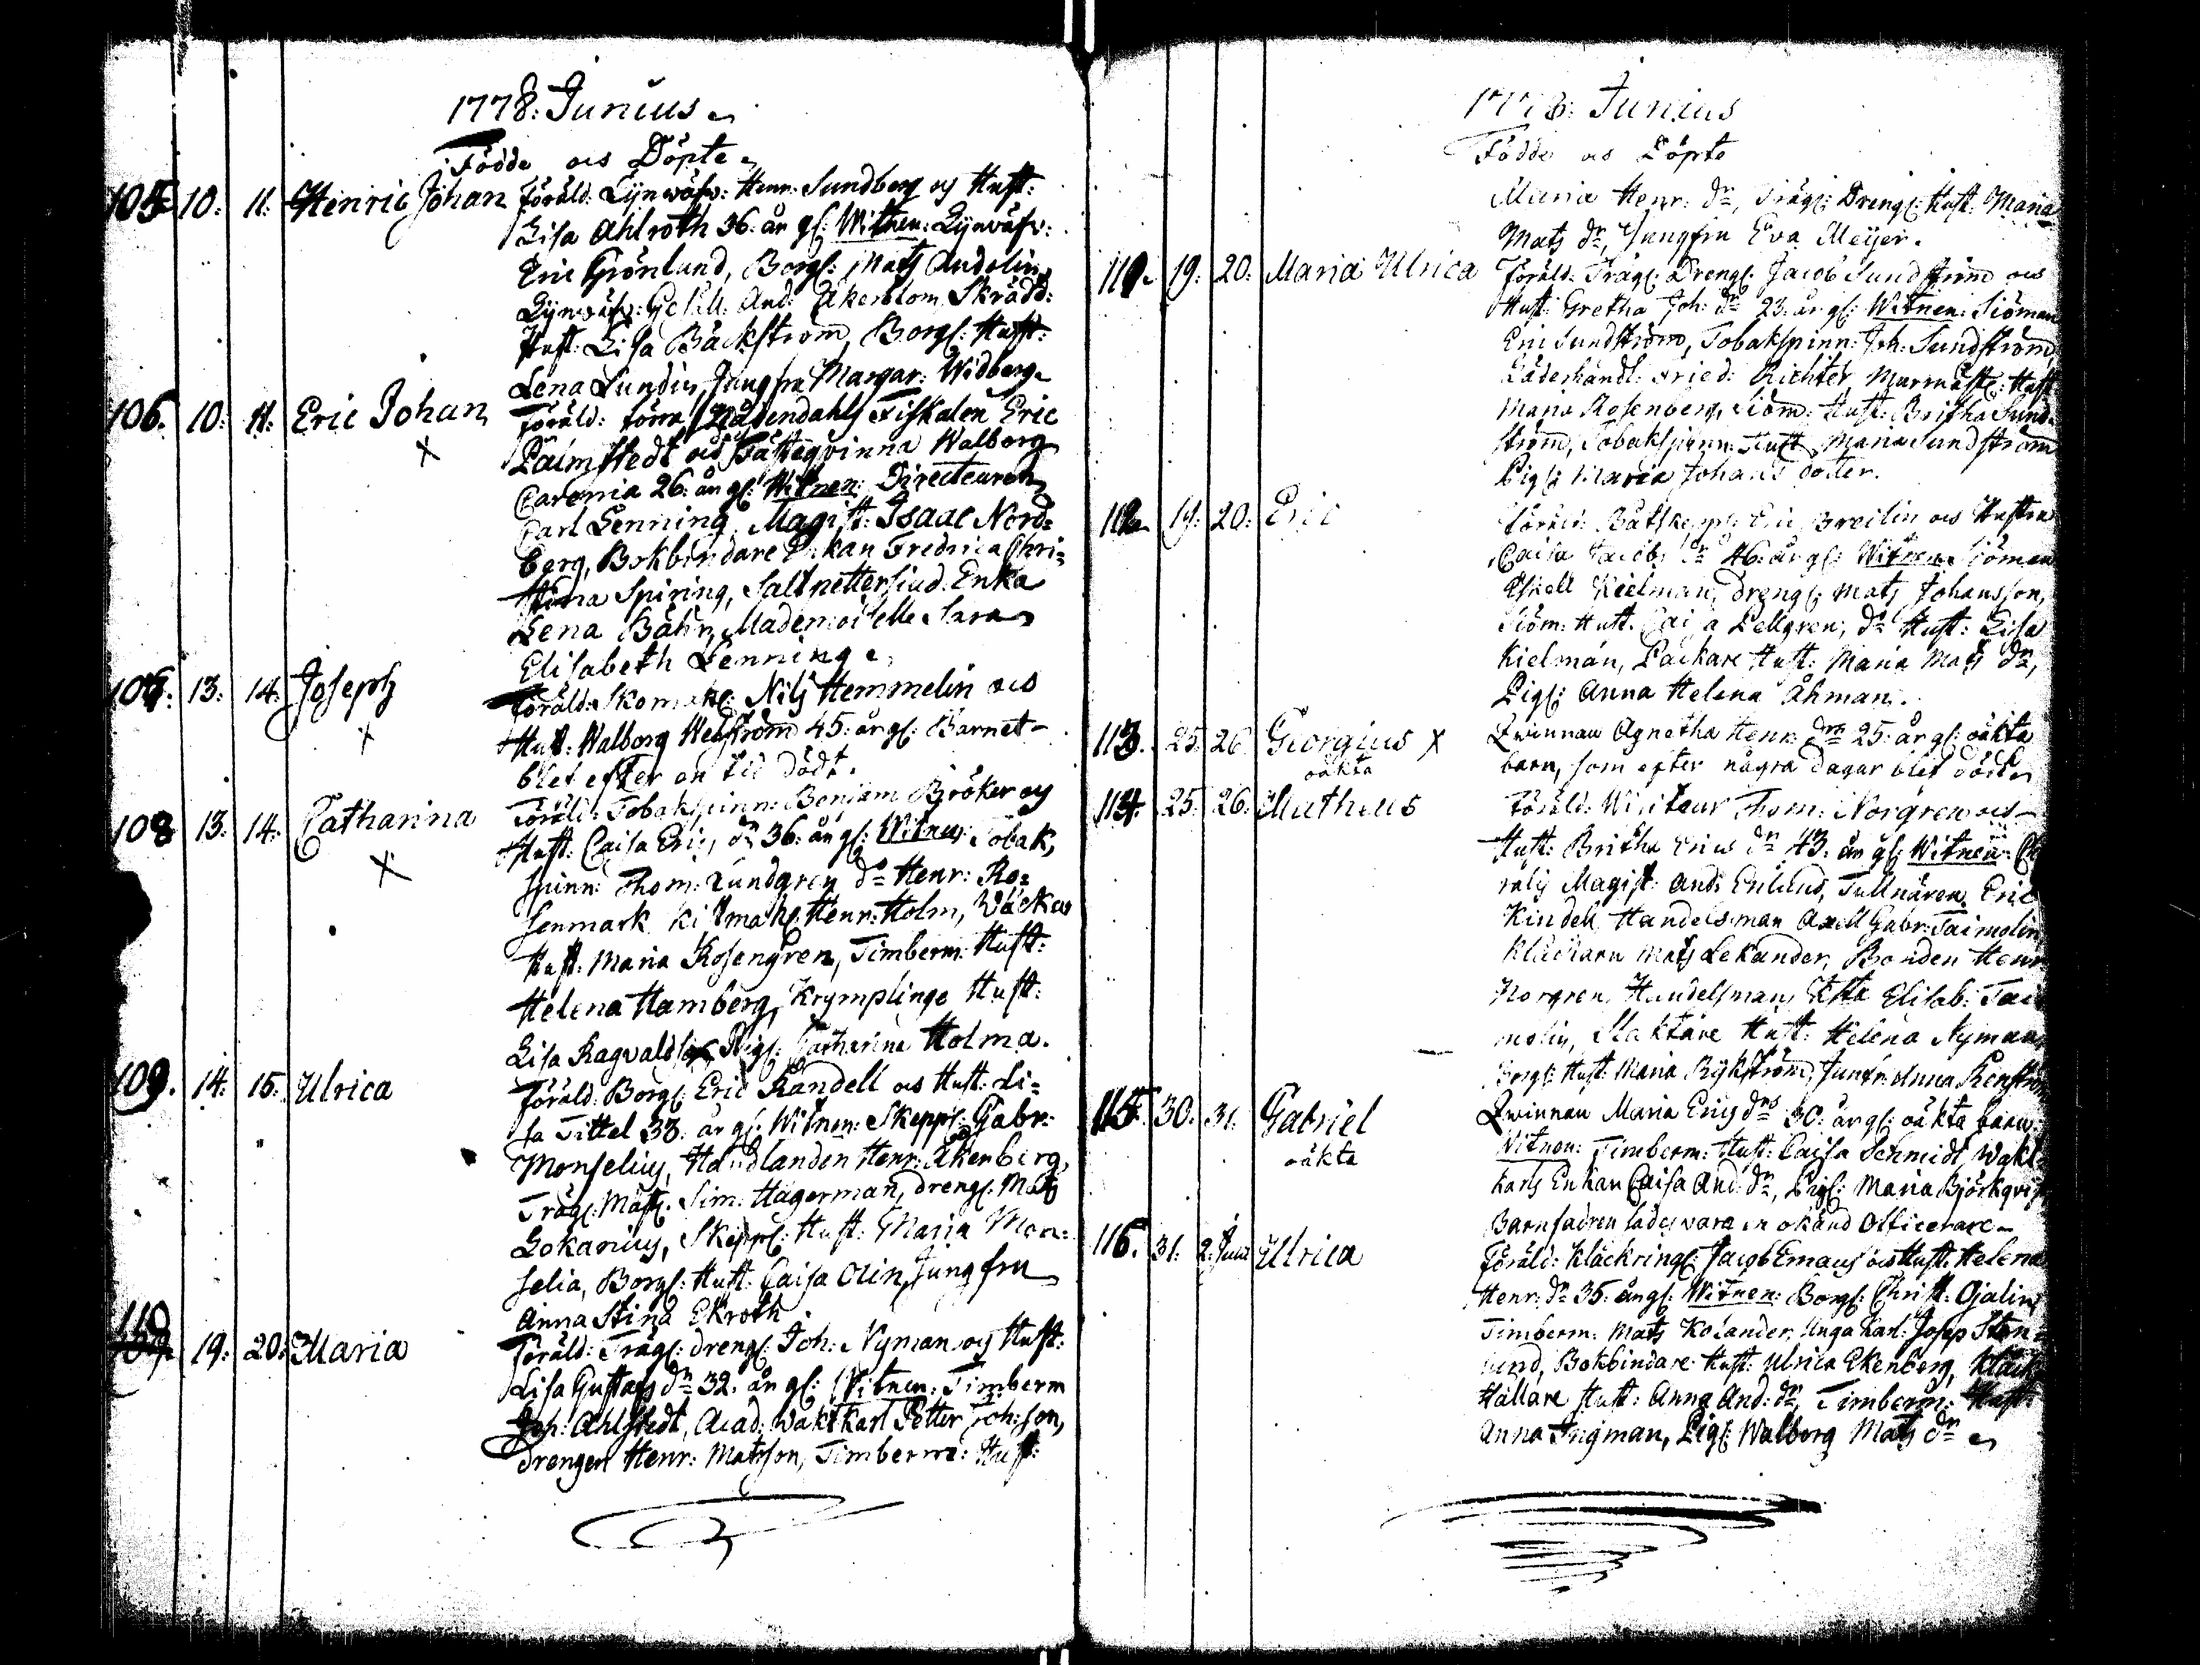 1778: Junius
Födde och Döpte
105 10: 11: Henric Johan Föräld: Lijnwäfv: Henr: Sundberg och Hust:
Lisa Ahlroth 36: år gl: Witnen: Lijnwäfv:
Eric Grönlund, Borgl: Mats Andelin,
Lijnwäfv: Gesäll And: Åkerblom, Skrädd:
Hust: Lisa Bäckström, Borgl: Hust:
Lena Lundin, Jungfru Margar: Widberg
106. 10: 11: Eric Johan Föräld: förra Nådendahls Fiskalen Eric
Palmstedt och Fästeqvinna Walborg
26: år gl: Witnen: Directeuren
Carl Lenning, Magist: Isaac Nord=
berg, Bokbindare Enkan Fredrica Chri=
stina Spiring, Saltnettersiud. Enka
Lena Bähr, Mademoiselle Sara
Elisabeth Lenning
13: 14: Joseph Föräld: Skomak: Nils Hemmelin och
Hust: Walborg Wegström 45: år gl: Barnet
blef efter en tid dödt.
108 13: 14: Catharina Föräld: Tobakspinn: Benjam Bröker och
Hust: Caisa Erics dr 36: år gl: Witnen: Tobak,
spinn: Thom: Lundgren, do Henr: Ro=
senmark Henr: Holm, Wäckar
Hust: Maria Rosengren, Timberm: Hust:
Helena Hamberg, Krymplinge Hust:
Lisa Ragvalds Pigl: Catharina Holma.
109. 14: 15: Ulrica Föräld: Borgl: Eric Randell och Hust: Li=
sa Tittel 38: år gl: Witnen: Skepp: Gabr:
Monselius, Handlanden Henr: Åkerberg,
Trägl: Mäst: Sim: Hagerman, drengl: Mats
Lokanius, Skepp: Hust: Maria Mon=
selia, Borgl: Hust: Caisa Olin, Jungfru
Anna Stina Ekroth.
110 19: 20: Maria Föräld: Trägl: drengl: Joh: Nyman och Hust:
Lisa Gustafs dr 32: år gl: Witnen: Timberm
Joh: Ahlstedt, Acad: Waktkarl Petter Joh:son,
drengen Henr: Matsson, Timberm: Hust:
1778: Junius
Födde och Döpte
Maria Henr: dr, Trägl: Drengl: Hust: Maria
Mats dr, Jungfru Eva Meijer.
19: 20: Maria Ulrica Föräld: Trägl: Drengl: Jacob Sundström och
Hust: Gretha Joh: dr 23: år gl: Witnen: Siöman
Eric Sundström, Tobakspinn: Joh: Sundström,
Läderhandl: Fried: Richter, Murmäst: Hust
Maria Rosenberg, Siöm: Hust: Britha Sund=
ström, Tobakspinn: Hust Maria Sundström
Pigl: Maria Johans doter.
112 19: 20: Eric Föräld: Båtskepp: Eric Breilin och Hustru
Caisa Jacobs dr 46: år gl: Witnen Siöman
Eskell Kielman, Drengl: Mats Johansson,
Siöm: Hust: Caisa Pellgren, do Hust: Lisa
Kielman, Packare Hust: Maria Mats dr,
Pigl: Anna Helena Åhman.
113. 25: 26: Georgius Qwinnan Agnetha Henr: dr 25: år gl: oäkta
oäkta barn, som efter några dagar blef dödt
114. 25: 26: Matheus Föräld: Visiteur Thom: Norgren och
Hust: Britha Erics dr 43: år gl: Witnen:
Magist: And: Enlund, Tullnären Eric
Kindell, Handelsman Axell Gabr: Taimelin
Mats Lekander, Bonden Henr
Norgren, Handelsmans Elisab: Tai
melin, Slaktare Hust: Helena Nyman,
Borgl: Hust: Maria Rykström, Jungfr: Anna Renström
115. 30: 31: Gabriel Qwinnan Maria Erics drs 30: år gl: oäkta barn.
oäkta Witnen: Timberm: Hust: Caisa Schmidt, Wakt
karls Enkan Caisa And: dr, Pigl: Maria Björkqvist
Barnfadren sades vara en okänd Officerare
116. 31: 2: Juni Ulrica Föräld: Kläckringl: Jacob Emaus och Hust: Helena
Henr: dr 35: år gl: Witnen: Borgl: Christ: Ojalin,
Timberm: Mats Kolander, Unga Karl: Josep Sten=
lund, Bokbindare Hust: Ulrica Ekenberg, Kläck
Hållare Hust: Anna And: dr, Timberm: Hust:
Anna Ingman, Pigl: Walborg Mats dr